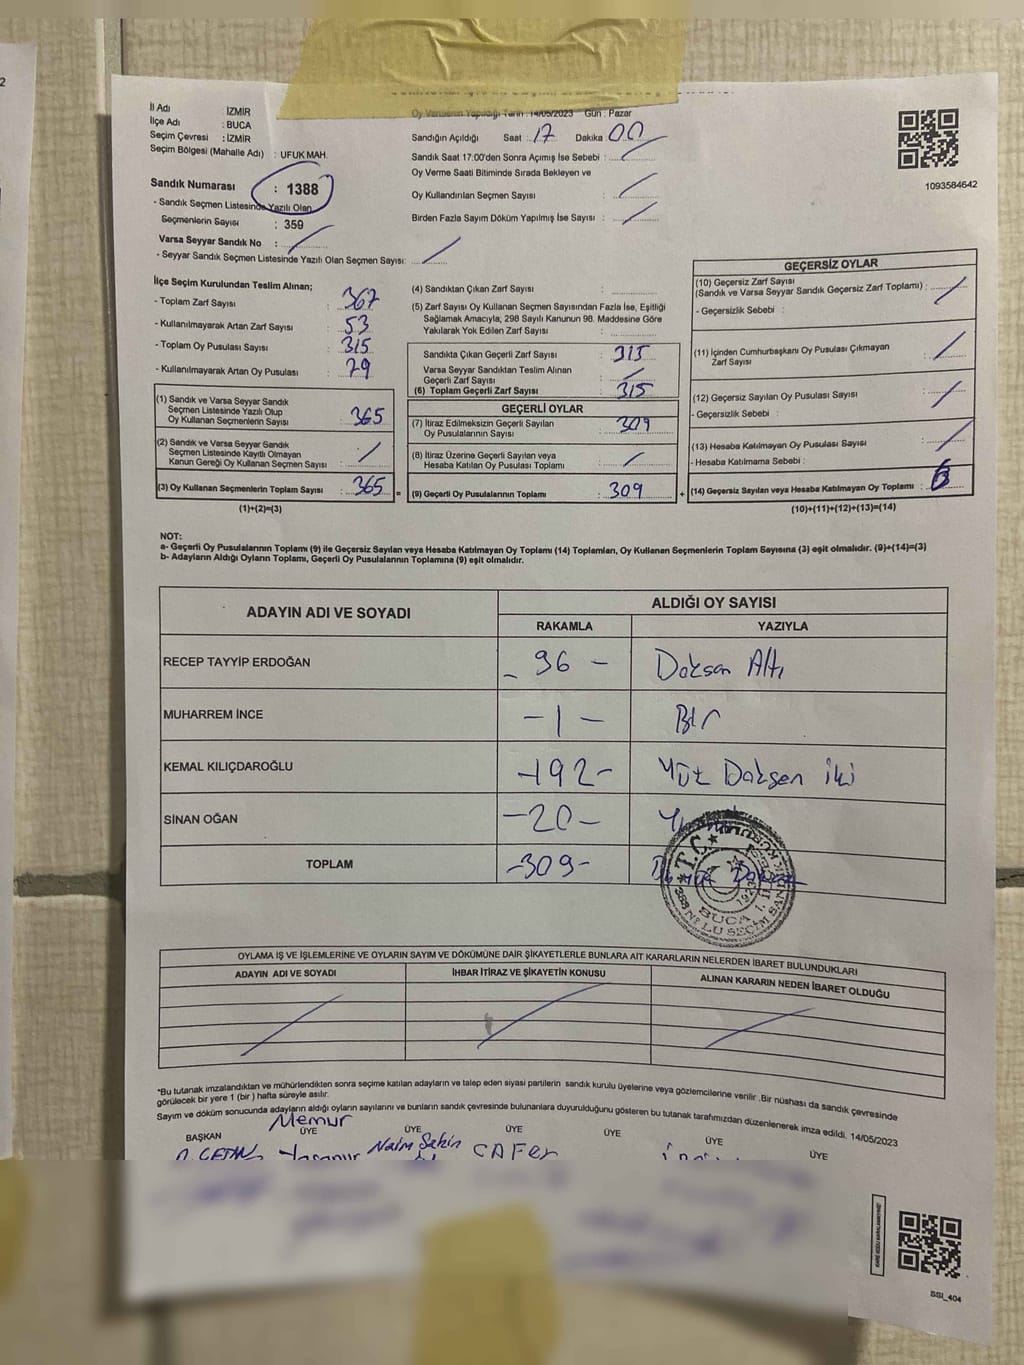 Oy Vermenin Yapıldığı Tarih : 14/05/2023 Gün : Pazar
İl Adı : İZMİR
İlçe Adı : BUCA
Seçim Çevresi : İZMİR
Seçim Bölgesi (Mahalle Adı) : UFUK MAH.
Sandık Numarası : 1388
- Sandık Seçmen Listesinde Yazılı Olan
Seçmenlerin Sayısı : 359
Varsa Seyyar Sandık No :
- Seyyar Sandık Seçmen Listesinde Yazılı Olan Seçmen Sayısı:
Sandığın Açıldığı Saat : 17 Dakika 00
Sandık Saat 17:00'den Sonra Açımış İse Sebebi :
Oy Verme Saati Bitiminde Sırada Bekleyen ve
Oy Kullandırılan Seçmen Sayısı :
Birden Fazla Sayım Döküm Yapılmış İse Sayısı :
1093584642
İlçe Seçim Kurulundan Teslim Alınan;
- Toplam Zarf Sayısı : 367
- Kullanılmayarak Artan Zarf Sayısı : 53
- Toplam Oy Pusulası Sayısı : 315
- Kullanılmayarak Artan Oy Pusulası : 79
(1) Sandık ve Varsa Seyyar Sandık
Seçmen Listesinde Yazılı Olup
Oy Kullanan Seçmenlerin Sayısı : 365
(2) Sandık ve Varsa Seyyar Sandık
Seçmen Listesinde Kayıtlı Olmayan
Kanun Gereği Oy Kullanan Seçmen Sayısı :
(3) Oy Kullanan Seçmenlerin Toplam Sayısı : 365 =
(1)+(2)=(3)
(4) Sandıktan Çıkan Zarf Sayısı :
(5) Zarf Sayısı Oy Kullanan Seçmen Sayısından Fazla İse, Eşitliği
Sağlamak Amacıyla; 298 Sayılı Kanunun 98. Maddesine Göre
Yakılarak Yok Edilen Zarf Sayısı :
Sandıkta Çıkan Geçerli Zarf Sayısı : 315
Varsa Seyyar Sandıktan Teslim Alınan
Geçerli Zarf Sayısı :
(6) Toplam Geçerli Zarf Sayısı : 315
GEÇERLİ OYLAR
(7) İtiraz Edilmeksizin Geçerli Sayılan
Oy Pusulalarının Sayısı : 309
(8) İtiraz Üzerine Geçerli Sayılan veya
Hesaba Katılan Oy Pusulası Toplamı :
(9) Geçerli Oy Pusulalarının Toplamı : 309 +
GEÇERSİZ OYLAR
(10) Geçersiz Zarf Sayısı
(Sandık ve Varsa Seyyar Sandık Geçersiz Zarf Toplamı) :
- Geçersizlik Sebebi :
(11) İçinden Cumhurbaşkanı Oy Pusulası Çıkmayan
Zarf Sayısı :
(12) Geçersiz Sayılan Oy Pusulası Sayısı :
- Geçersizlik Sebebi :
(13) Hesaba Katılmayan Oy Pusulası Sayısı :
- Hesaba Katılmama Sebebi :
(14) Geçersiz Sayılan veya Hesaba Katılmayan Oy Toplamı :
(10)+(11)+(12)+(13)=(14)
NOT:
a- Geçerli Oy Pusulalarının Toplamı (9) ile Geçersiz Sayılan veya Hesaba Katılmayan Oy Toplamı (14) Toplamları, Oy Kullanan Seçmenlerin Toplam Sayısına (3) eşit olmalıdır. (9)+(14)=(3)
b- Adayların Aldığı Oyların Toplamı, Geçerli Oy Pusulalarının Toplamına (9) eşit olmalıdır.
ADAYIN ADI VE SOYADI
ALDIĞI OY SAYISI
RAKAMLA YAZIYLA
RECEP TAYYİP ERDOĞAN - 96 - Doksan Altı
MUHARREM İNCE - 1 - Bir
KEMAL KILIÇDAROĞLU - 192 - Yüz Doksan iki
SİNAN OĞAN - 20 -
TOPLAM - 309 -
T.C.
BUCA
OYLAMA İŞ VE İŞLEMLERİNE VE OYLARIN SAYIM VE DÖKÜMÜNE DAİR ŞİKAYETLERLE BUNLARA AİT KARARLARIN NELERDEN İBARET BULUNDUKLARI
ADAYIN ADI VE SOYADI İHBAR İTİRAZ VE ŞİKAYETİN KONUSU ALINAN KARARIN NEDEN İBARET OLDUĞU
*Bu tutanak imzalandıktan ve mühürlendikten sonra seçime katılan adayların ve talep eden siyasi partilerin sandık kurulu üyelerine veya gözlemcilerine verilir .Bir nüshası da sandık çevresinde
görülecek bir yere 1 (bir) hafta süreyle asılır.
Sayım ve döküm sonucunda adayların aldığı oyların sayılarını ve bunların sandık çevresinde bulunanlara duyurulduğunu gösteren bu tutanak tarafımızdan düzenlenerek imza edildi. 14/05/2023
Memur
BAŞKAN ÜYE ÜYE ÜYE ÜYE ÜYE ÜYE
Naim Şahin CAFer
SSI_404